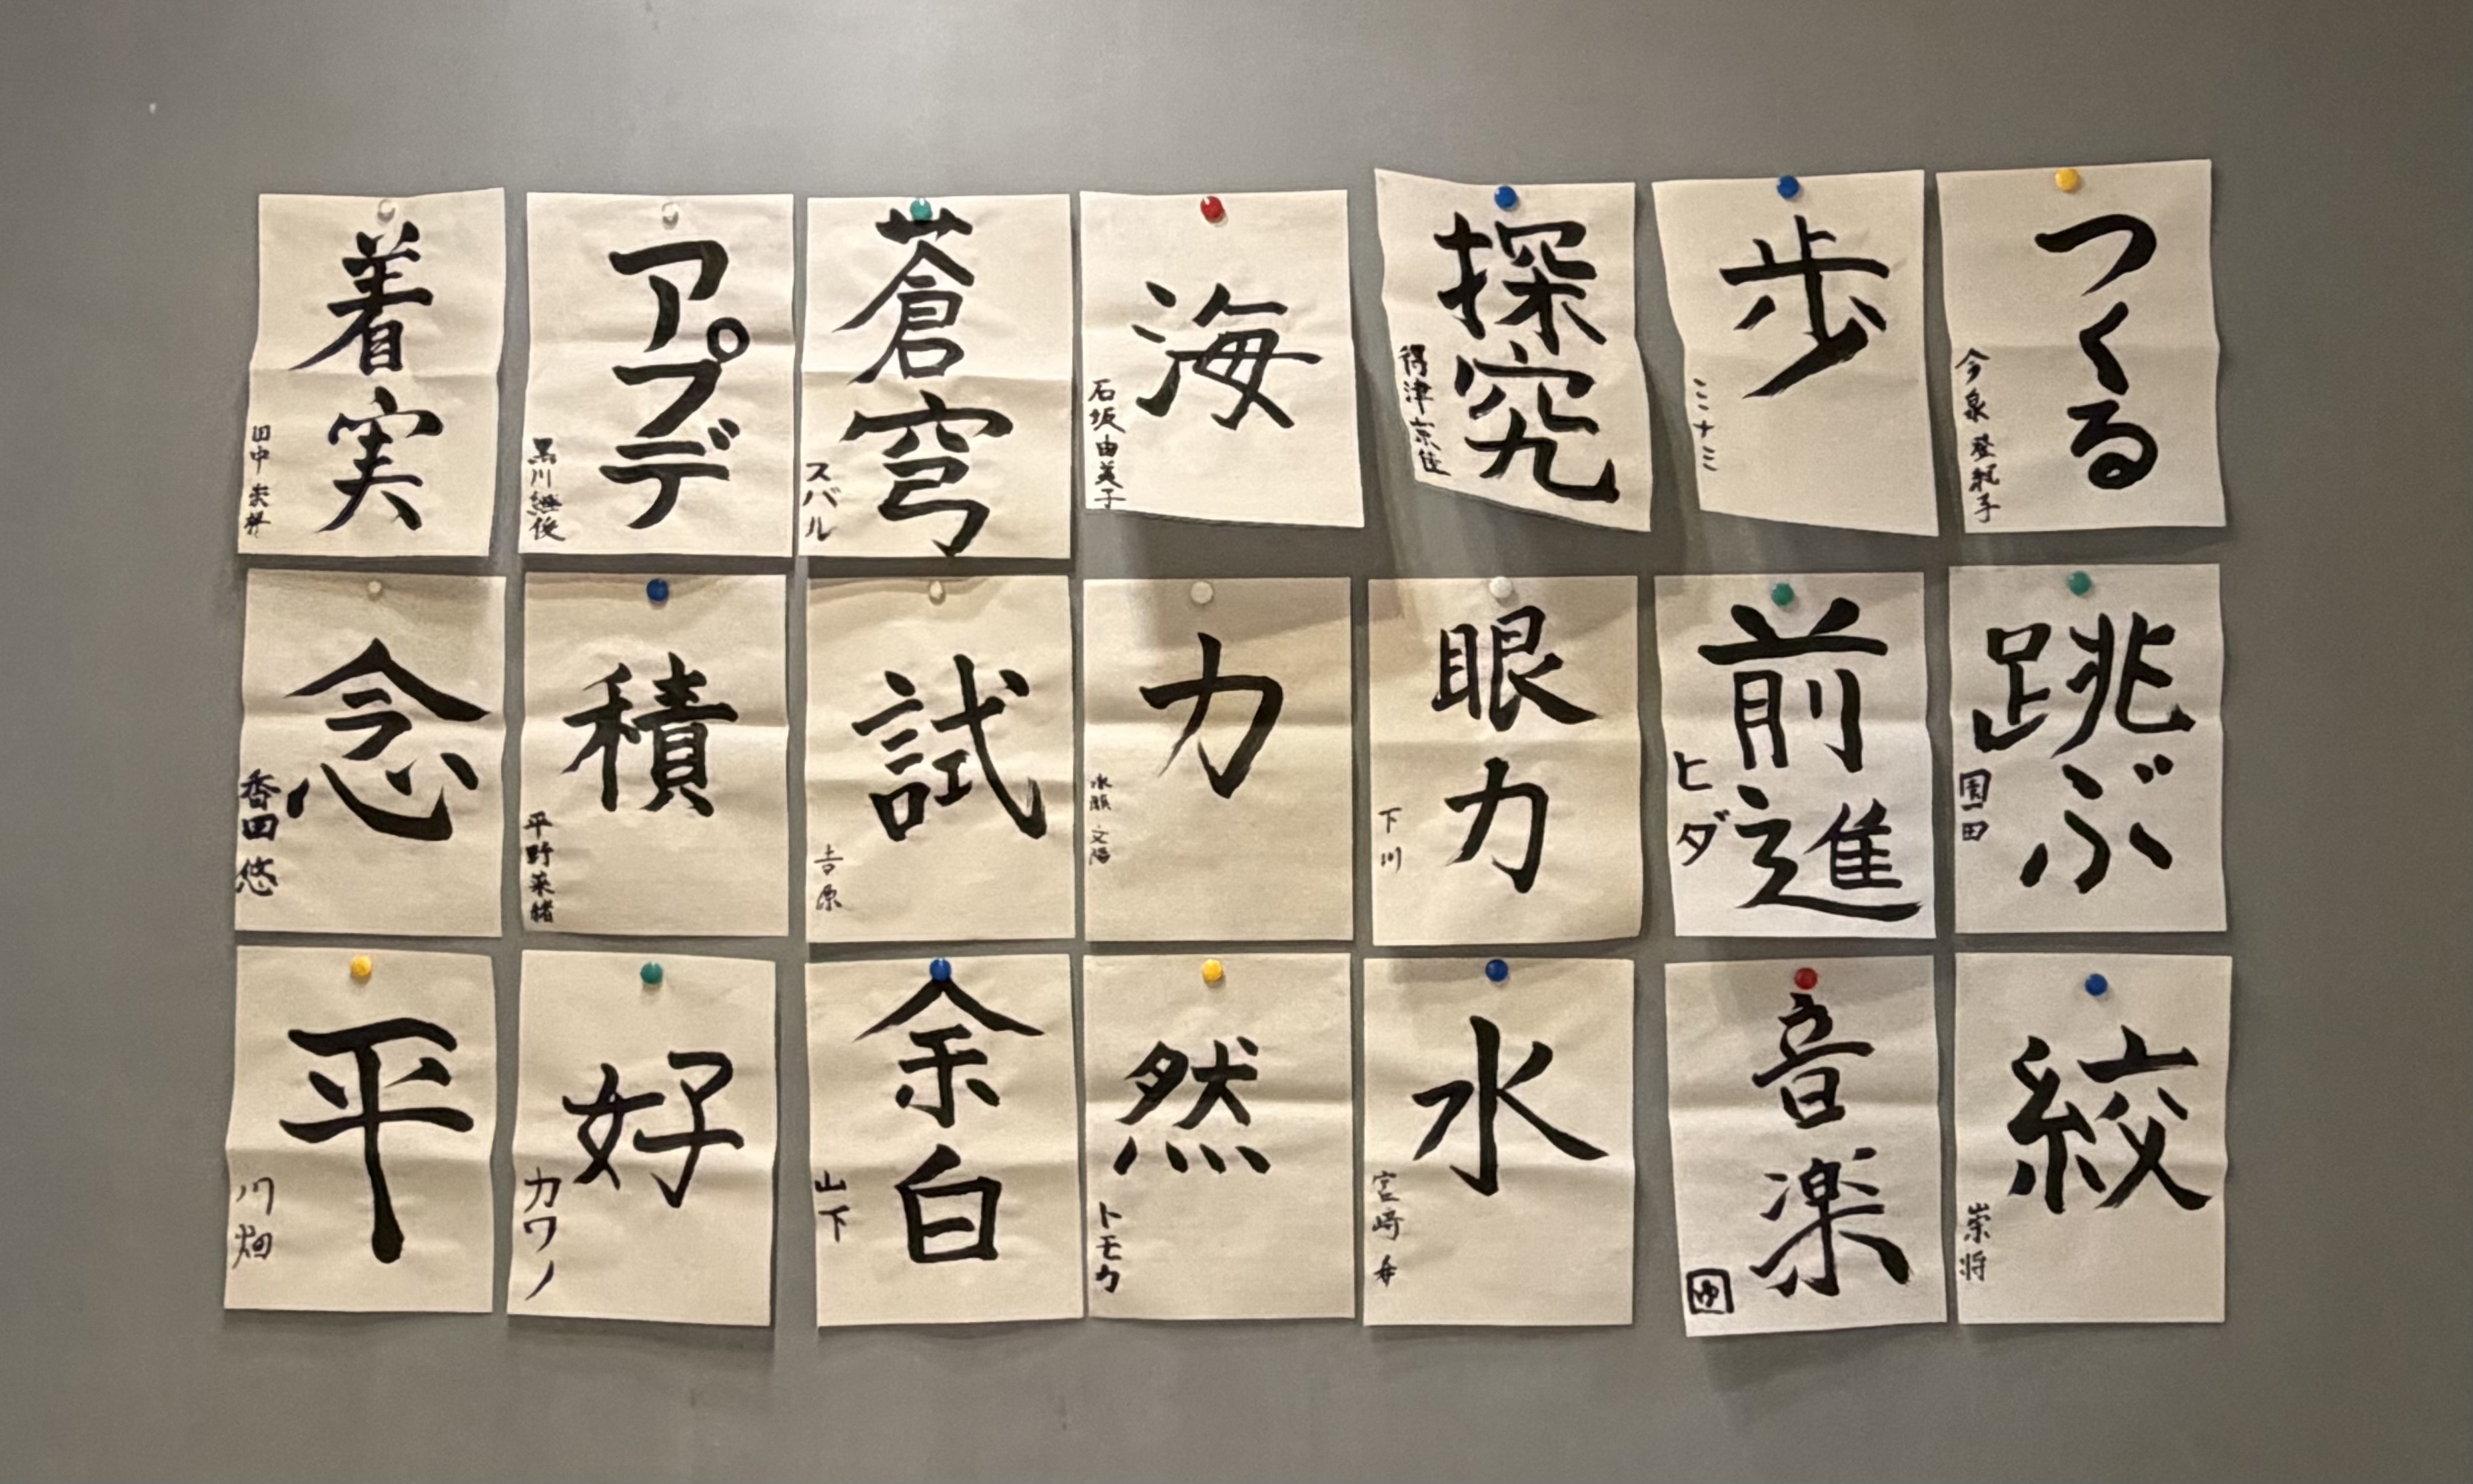 つくる
今泉登紀子
歩
ミナミ
探究
得津京佳
海
石坂由美子
蒼穹
スバル
アプデ
黒川継俊
着実
田中
跳ぶ
園田
前進
ヒダ
眼力
下川
力
試
吉原
積
平野菜緒
念
香田悠
絞
崇将
音楽
ゆ
水
宮崎
然
トモカ
余白
山下
好
カワノ
平
川畑